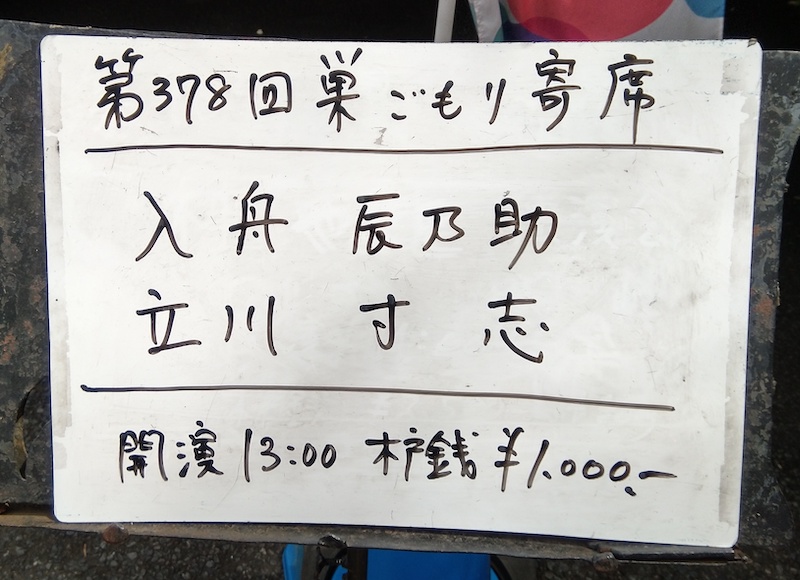 第378回巣ごもり寄席
入舟 辰乃助
立川 寸志
開演13:00 木戸銭¥1.000.-